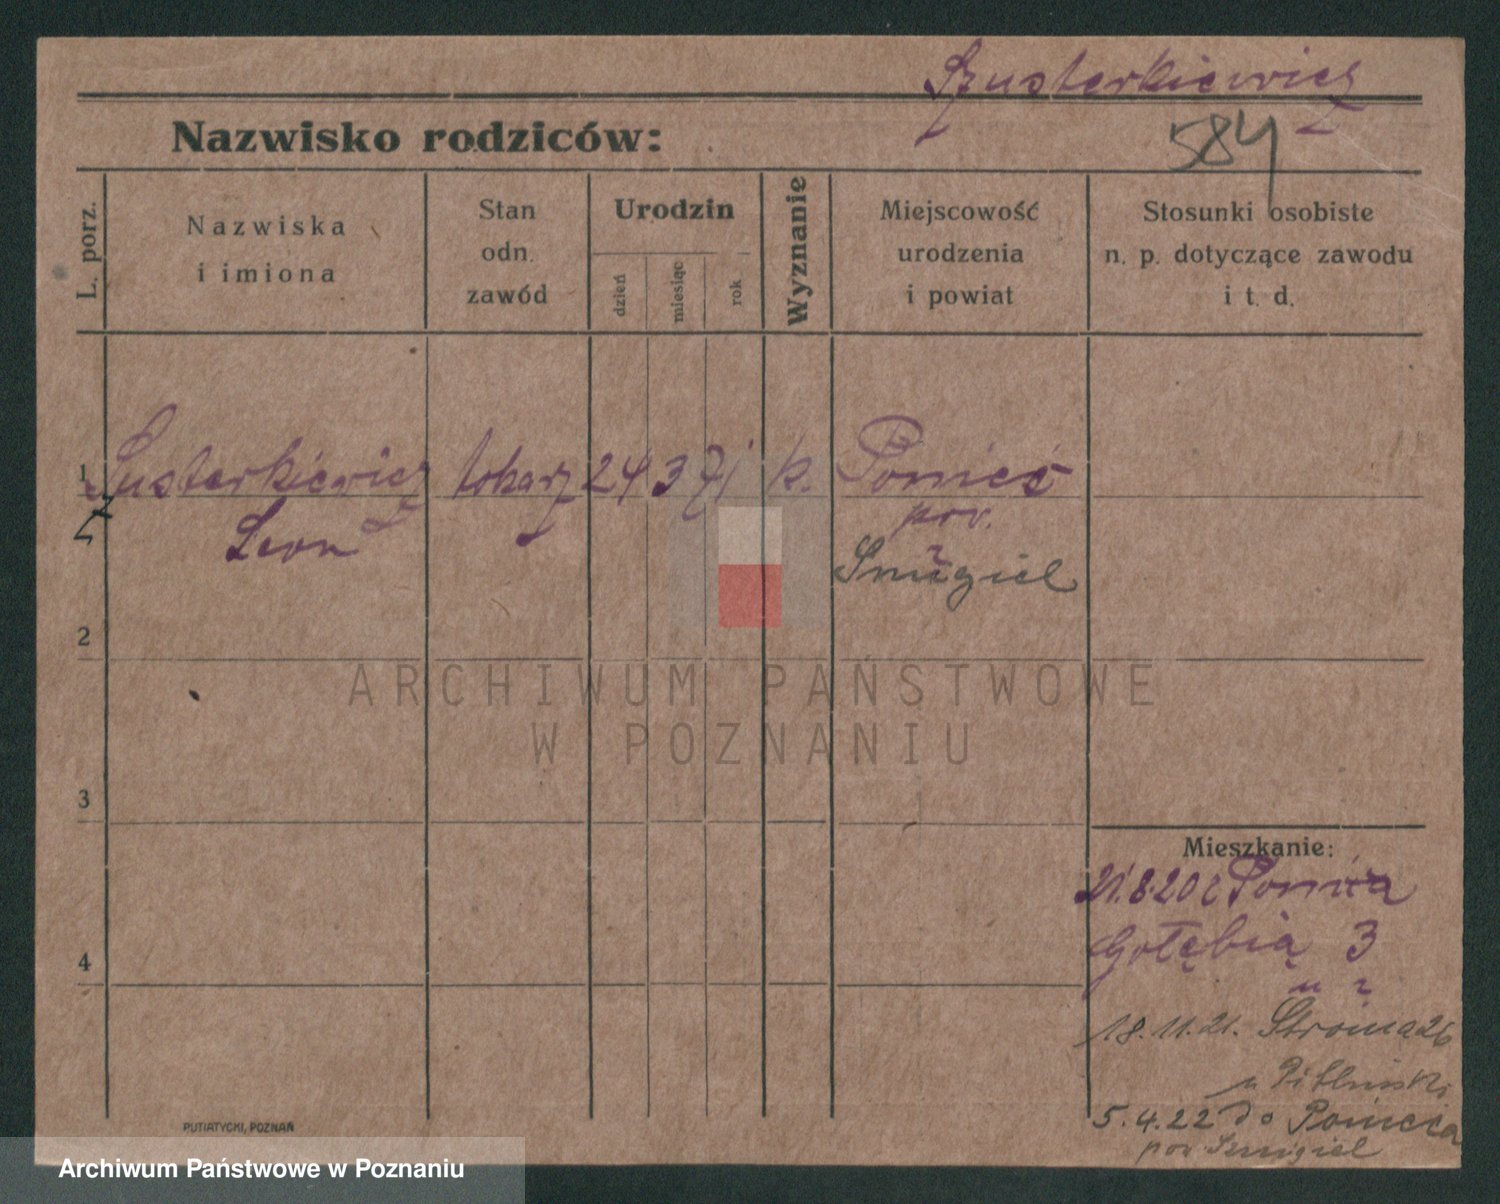 Szusterkiewicz
584
Nazwisko rodziców:
L. porz.
Nazwiska
i imiona
Stan
odn.
zawód
Urodzin
dzień
miesiąc
rok
Wyznanie
Miejscowość
urodzenia
i powiat
Stosunki osobiste
n. p. dotyczące zawodu
i t. d.
1 Susterkiewicz tokarz 24 3 71 k. Poniec
Leon pow.
Śmigiel
2
3
4
Mieszkanie:
21.8.20 z Ponieca
Gołębia 3
18.11.21. Stroma 26
5.4.22 do Ponieca
pow Śmigiel
PUTIATYCKI, POZNAŃ
ARCHIWUM PAŃSTWOWE
W POZNANIU
Archiwum Państwowe w Poznaniu